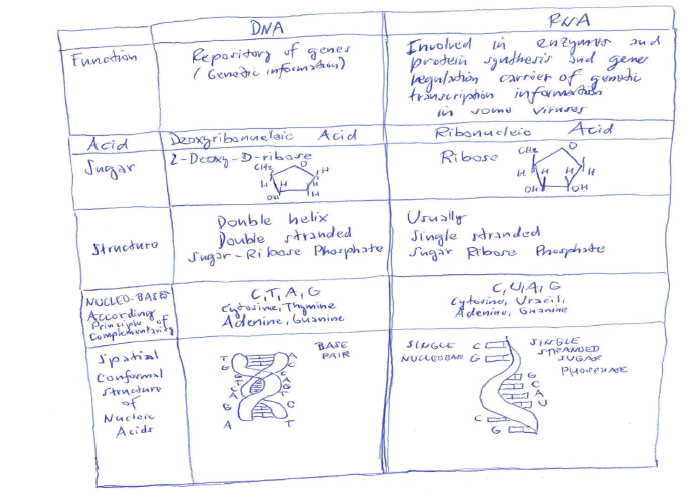 DNA
RNA
Function
Repository of genes
(Genetic information)
Involved in enzymes and
protein synthesis and genes
regulation carrier of genetic
transcription information
in some viruses
Acid
Deoxyribonucleic Acid
Ribonucleic Acid
Sugar
2-Deoxy-D-ribose
CH2
O
H
H
H
H
OH
Ribose
CH2
O
H
H
H
H
OH
OH
Structure
Double helix
Double stranded
Sugar-Ribose Phosphate
Usually
Single stranded
Sugar Ribose Phosphate
NUCLEO-BASES
According
Principle of
Complementarity
C,T,A,G
Cytosine,Thymine
Adenine,Guanine
C,U,A,G
Cytosine, Uracil,
Adenine, Guanine
Spatial
Conformal
Structure
of
Nucleic
Acids
BASE
PAIR
T
G
A
C
G
A
C
T
SINGLE
NUCLEOBASE
C
G
SINGLE
STRANDED
SUGAR
PHOSPHATE
G
C
A
U
C
G